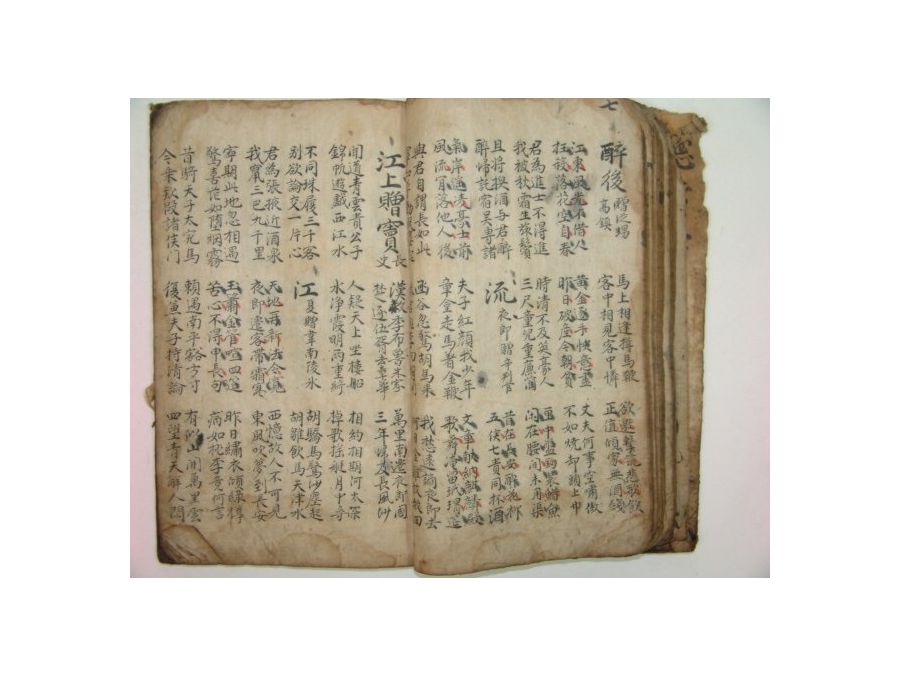 七
醉後
贈從甥
高鎮
馬上相逢揖馬鞭
客中相見客中憐
欲邀擊筑悲歌飲
正值傾家無酒錢
江東風光不借人
枉殺落花空自春
黃金逐手快意盡
昨日破產今朝貧
丈夫何事空嘯傲
不如燒却頭上巾
君為進士不得進
我被秋霜生旅鬢
時清不及英豪人
三尺童兒重廉藺
匣中盤劍裝䱜魚
閑在腰間未用渠
且將換酒与君醉
醉歸託宿吳專諸
流
夜郎贈辛判官
昔在長安醉花柳
五侯七貴同杯酒
氣岸遙凌豪士前
風流肯落他人後
夫子紅顏我少年
章臺走馬著金鞭
文章献納麒麟殿
歌舞淹留玳瑁筵
與君自謂長如此
函谷忽驚胡馬來
我愁遠謫夜郎去
何日金雞放赦回
江上贈竇長史
漢求季布魯朱家
楚逐伍胥去章華
萬里南遷夜郎國
三年歸及長風沙
聞道青雲貴公子
錦帆遊戲西江水
人疑天上坐樓船
水淨霞明兩重綺
相約相期何太深
棹歌搖艇月中尋
不同珠履三千客
別欲論交一片心
江
夏贈韋南陵氷
胡驕馬驚沙塵起
胡雛飲馬天津水
君為張掖近酒泉
我竄三巴九千里
天地再新法令寬
夜郎遷客滯霜寒
西憶故人不可見
東風吹夢到長安
寧期此地忽相遇
驚喜茫如堕烟霧
玉簫金管喧四筵
苦心不得申長句
昨日繡衣傾綠樽
病如桃李竟何言
昔將天子大宛馬
今乘款段諸侯門
賴遇南平豁方寸
復兼夫子持清論
有似山開萬里雲
四望青天解人悶